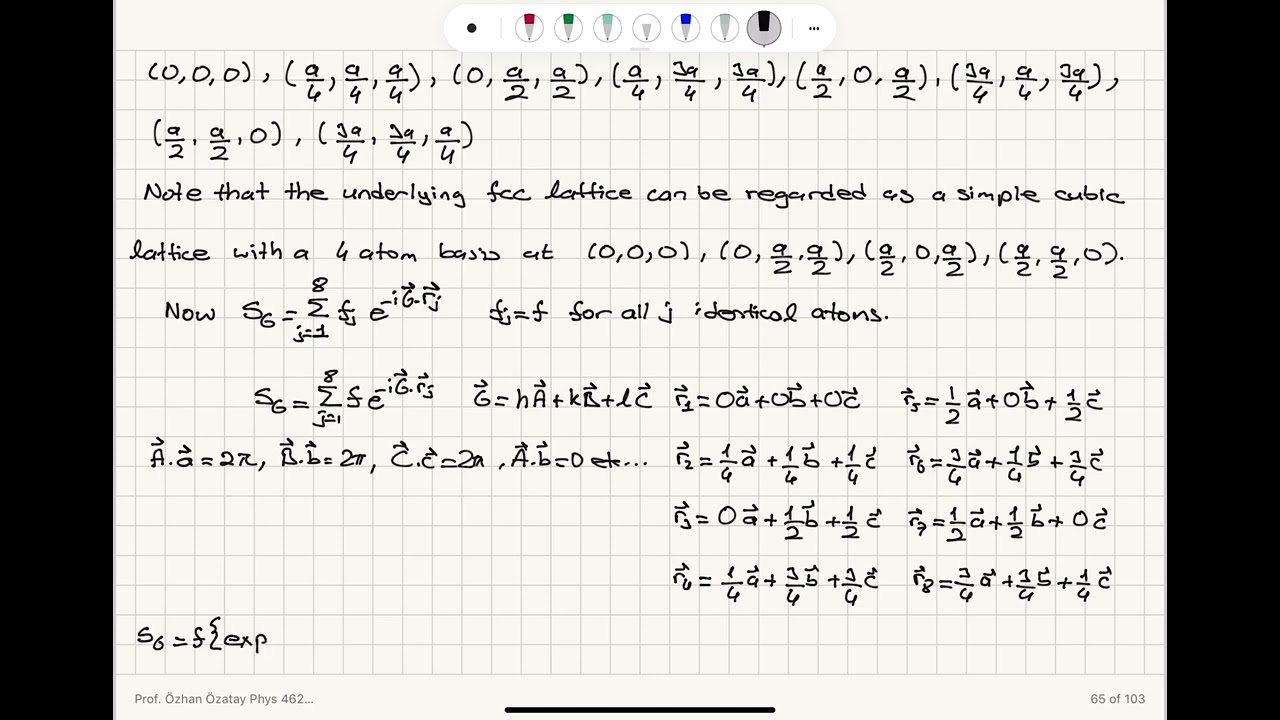 (0,0,0), (a/4, a/4, a/4), (0, a/2, a/2), (a/4, 3a/4, 3a/4), (a/2, 0, a/2), (3a/4, a/4, 3a/4),
(a/2, a/2, 0), (3a/4, 3a/4, a/4)
Note that the underlying fcc lattice can be regarded as a simple cubic
lattice with a 4 atom basis at (0,0,0), (0, a/2, a/2), (a/2, 0, a/2), (a/2, a/2, 0).
Now S_G = Σ_{j=1}^{8} f_j e^{-i\vec{G}.\vec{r}_j} f_j = f for all j identical atoms.
S_G = Σ_{j=1}^{8} f e^{-i\vec{G}.\vec{r}_j} \vec{G} = h\vec{A} + k\vec{B} + l\vec{C} \vec{r}_1 = 0\vec{a} + 0\vec{b} + 0\vec{c} \vec{r}_5 = 1/2 \vec{a} + 0\vec{b} + 1/2 \vec{c}
\vec{A}.\vec{a} = 2π, \vec{B}.\vec{b} = 2π, \vec{C}.\vec{c} = 2π, \vec{A}.\vec{b} = 0 etc... \vec{r}_2 = 1/4 \vec{a} + 1/4 \vec{b} + 1/4 \vec{c} \vec{r}_6 = 3/4 \vec{a} + 1/4 \vec{b} + 3/4 \vec{c}
\vec{r}_3 = 0\vec{a} + 1/2 \vec{b} + 1/2 \vec{c} \vec{r}_7 = 1/2 \vec{a} + 1/2 \vec{b} + 0\vec{c}
\vec{r}_4 = 1/4 \vec{a} + 3/4 \vec{b} + 3/4 \vec{c} \vec{r}_8 = 3/4 \vec{a} + 3/4 \vec{b} + 1/4 \vec{c}
S_G = f{exp
Prof. Özhan Özatay Phys 462... 65 of 103